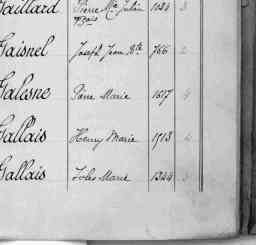 Gaillard Pierre Mie Julien 1084 3
Gaisnel Joseph Jean Bte 766 2
Galesne Pierre Marie 1617 4
Gallais Henry Marie 1513 4
Gallais Jules Marie 1344 3